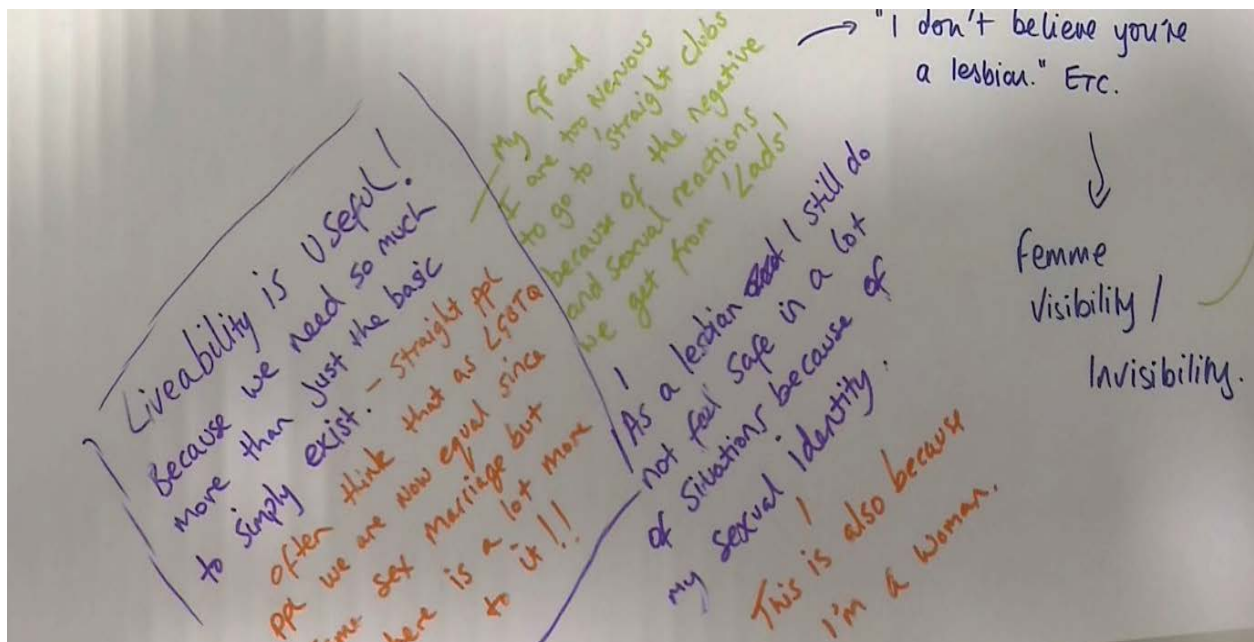 Liveability is Useful!
Because we need so much
more than just the basic
to simply exist. - straight ppl
often think that as LGBTQ
ppl we are now equal since
sex marriage but
is a lot more
to it!!
- My GF and
I are too Nervous
to go to 'straight clubs
because of the negative
and sexual reactions
we get from 'Lads'
As a lesbian I still do
not feel safe in a lot
of situations because of
my sexual identity.
This is also because
I'm a woman.
"I don't believe you're
a lesbian." ETC.
Femme
Visibility /
Invisibility.